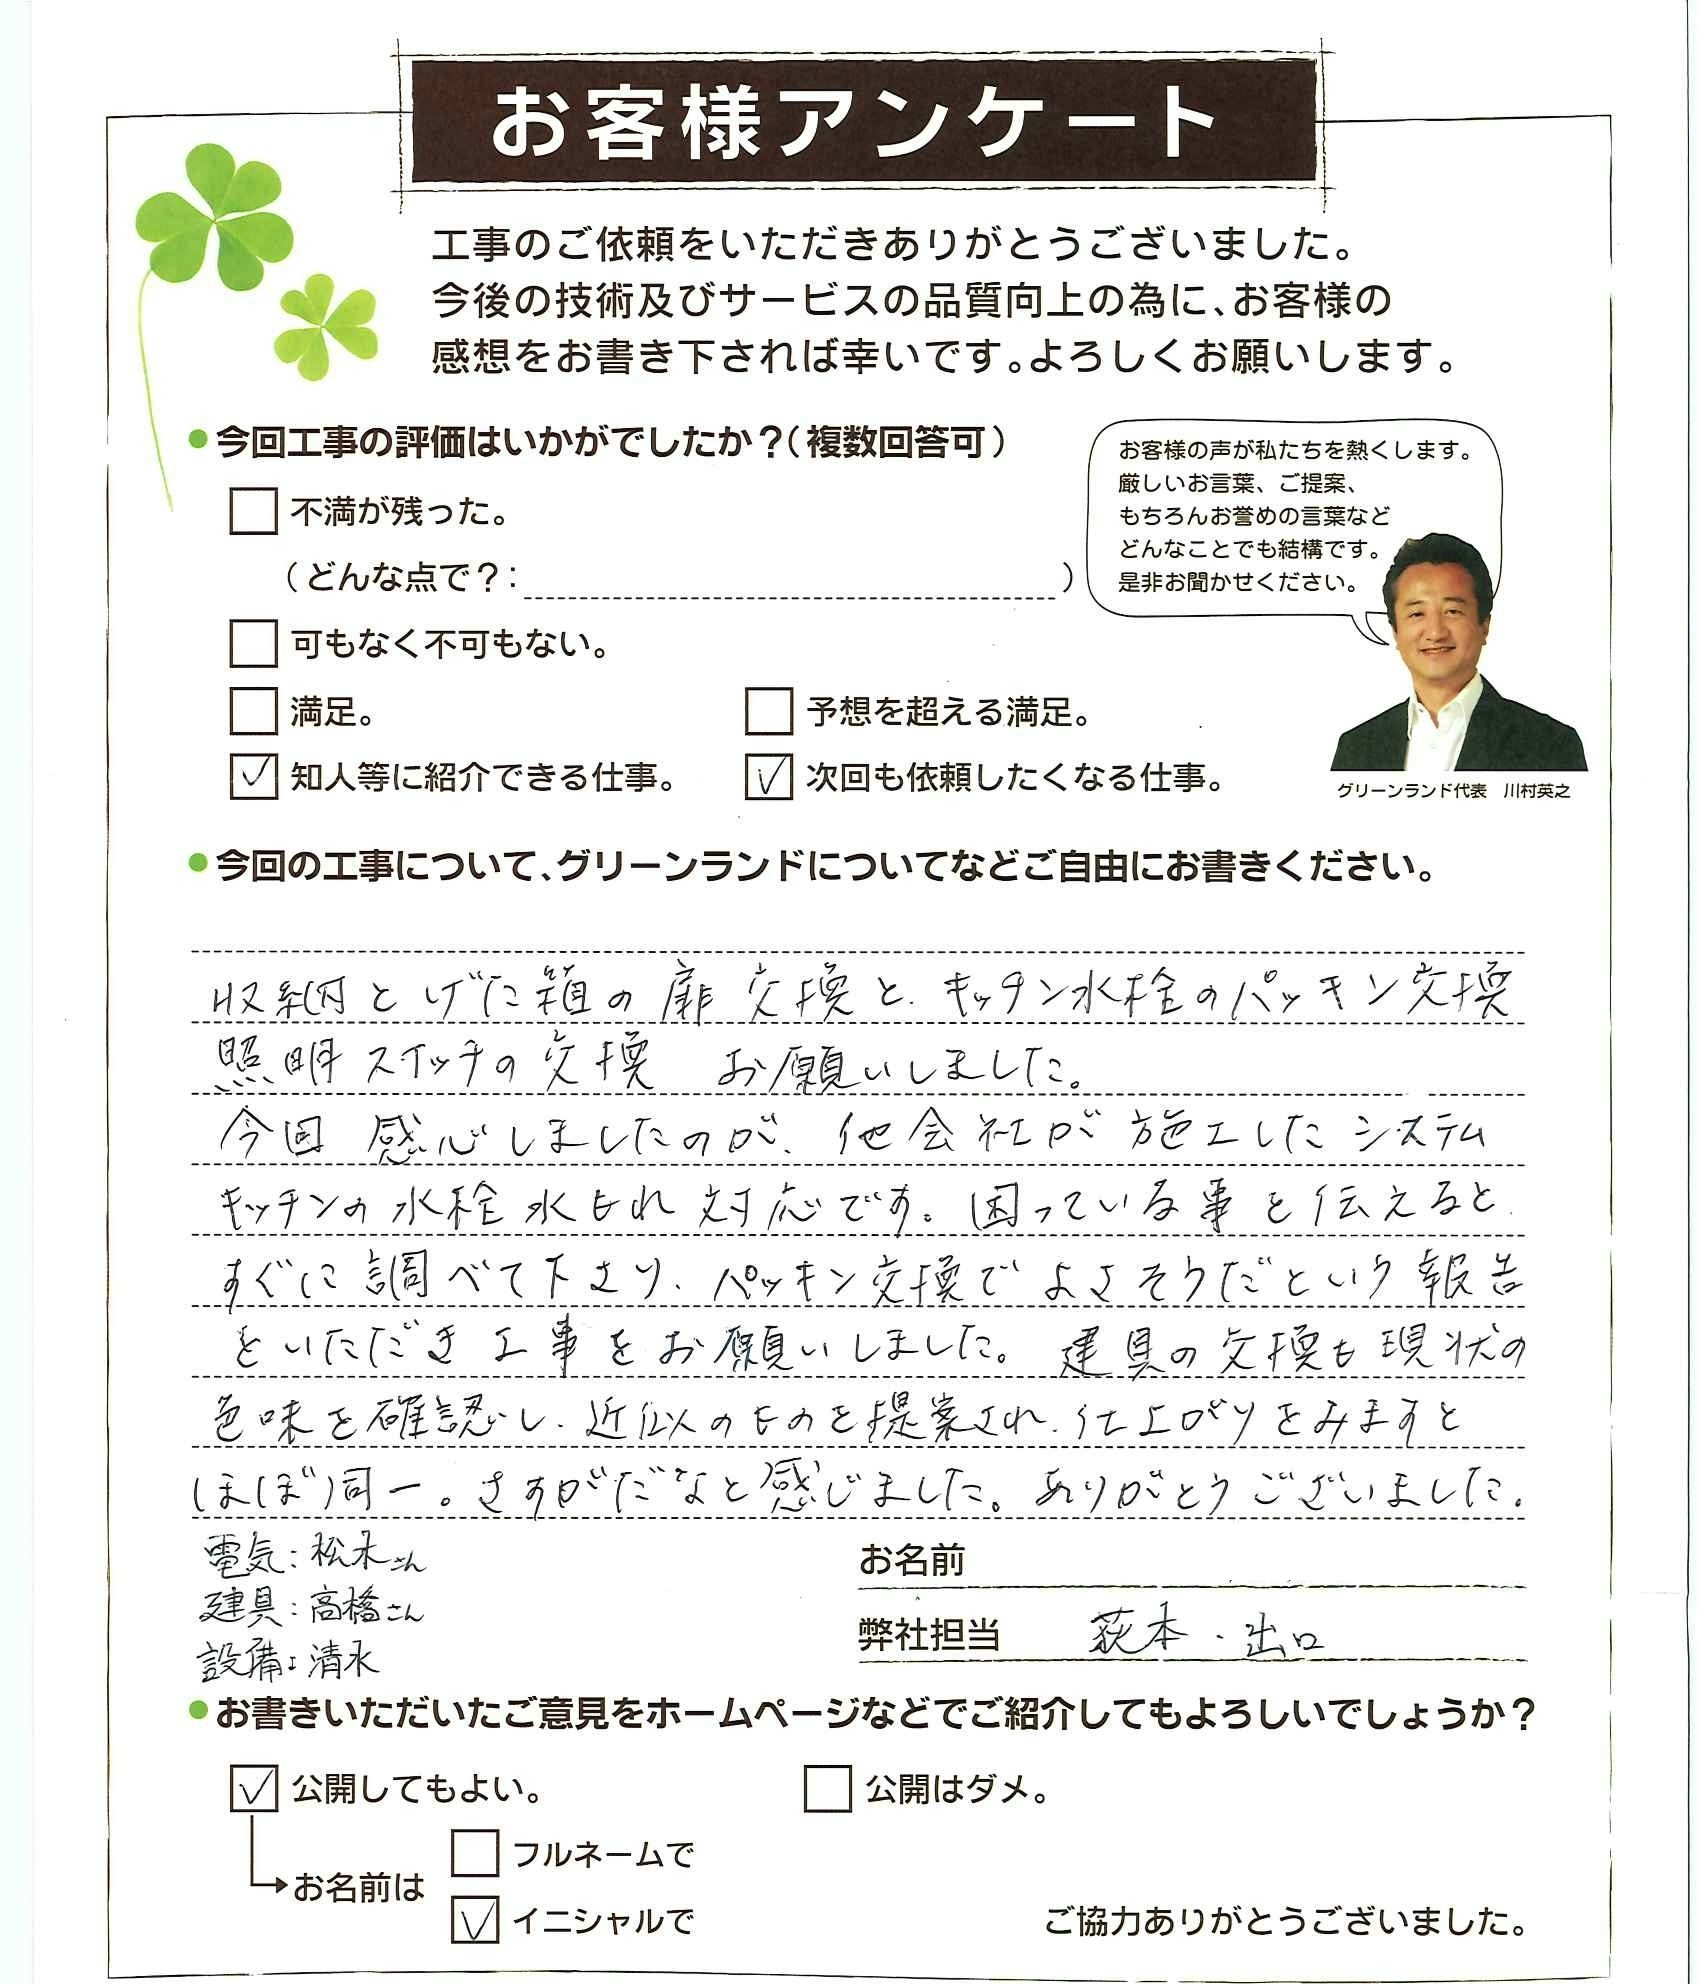 お客様アンケート
工事のご依頼をいただきありがとうございました。
今後の技術及びサービスの品質向上の為に、お客様の
感想をお書き下されば幸いです。よろしくお願いします。
●今回工事の評価はいかがでしたか？（複数回答可）
お客様の声が私たちを熱くします。
厳しいお言葉、ご提案、
もちろんお誉めの言葉など
どんなことでも結構です。
是非お聞かせください。
不満が残った。
（どんな点で？：　）
可もなく不可もない。
満足。
予想を超える満足。
✓ 知人等に紹介できる仕事。
✓ 次回も依頼したくなる仕事。
グリーンランド代表　川村英之
●今回の工事について、グリーンランドについてなどご自由にお書きください。
収納とげた箱の扉交換と、キッチン水栓のパッキン交換
照明スイッチの交換　お願いしました。
今回感心しましたのが、他会社が施工したシステム
キッチンの水栓水もれ対応です。困っている事を伝えると、
すぐに調べて下さり、パッキン交換でよさそうだという報告
をいただき工事をお願いしました。建具の交換も現状の
色味を確認し、近似のものを提案され、仕上がりをみますと
ほぼ同一。さすがだなと感じました。ありがとうございました。
電気：松木さん
建具：高橋さん
設備：清水
お名前
弊社担当　荻本・出口
●お書きいただいたご意見をホームページなどでご紹介してもよろしいでしょうか？
✓ 公開してもよい。
公開はダメ。
お名前は
フルネームで
✓ イニシャルで
ご協力ありがとうございました。